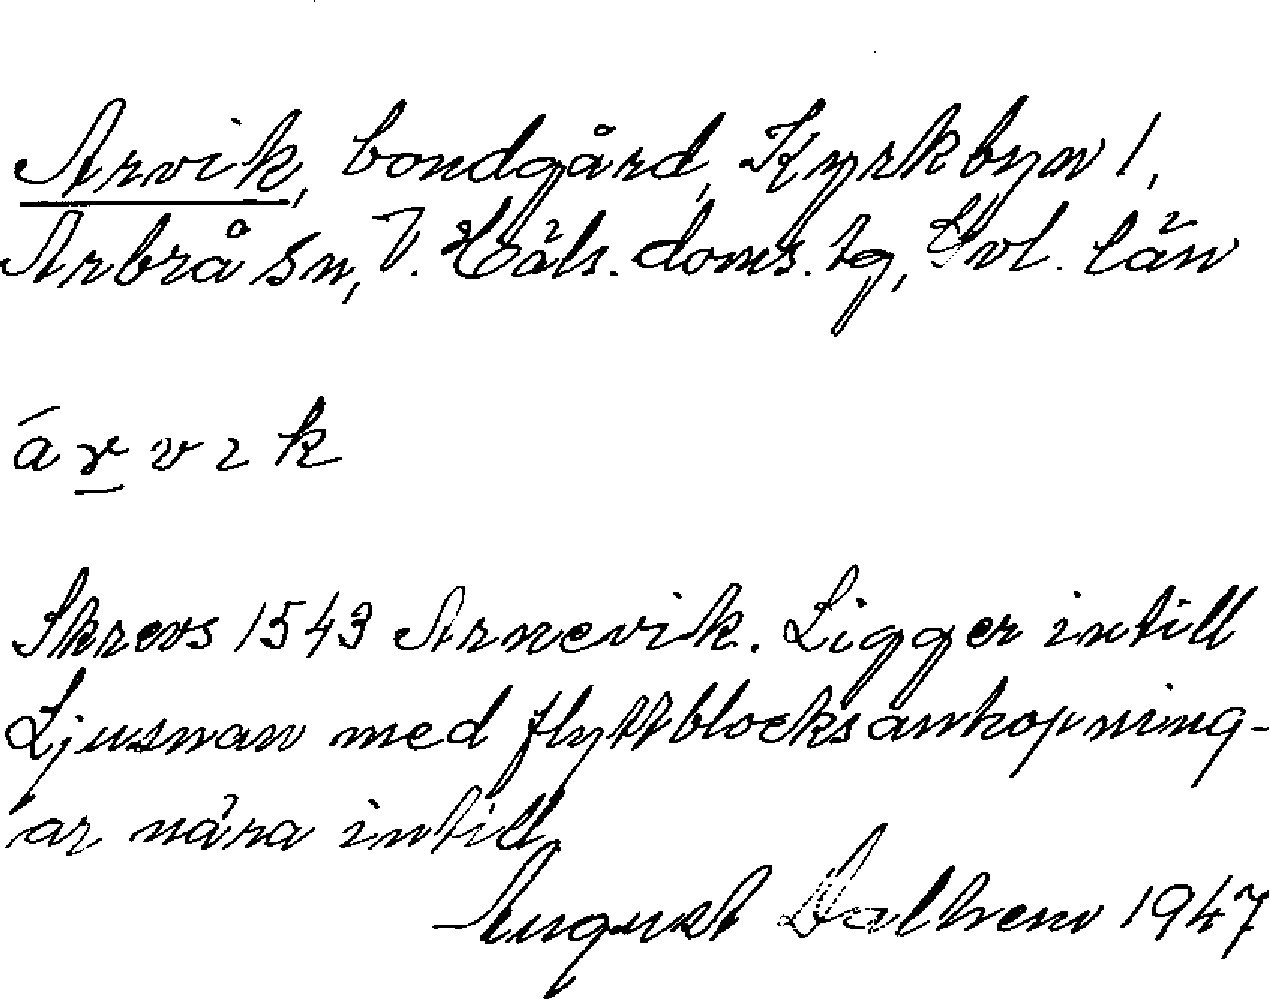 Arvik, bondgård, Kyrkbyn 1,
Arbrå sn, V. Häls. doms. tg, Gvl. län
á r v ı k
Skrevs 1543 Arnevik. Ligger intill
Ljusnan med flyttblocksanhopning-
ar nära intill
August Dalhem 1947